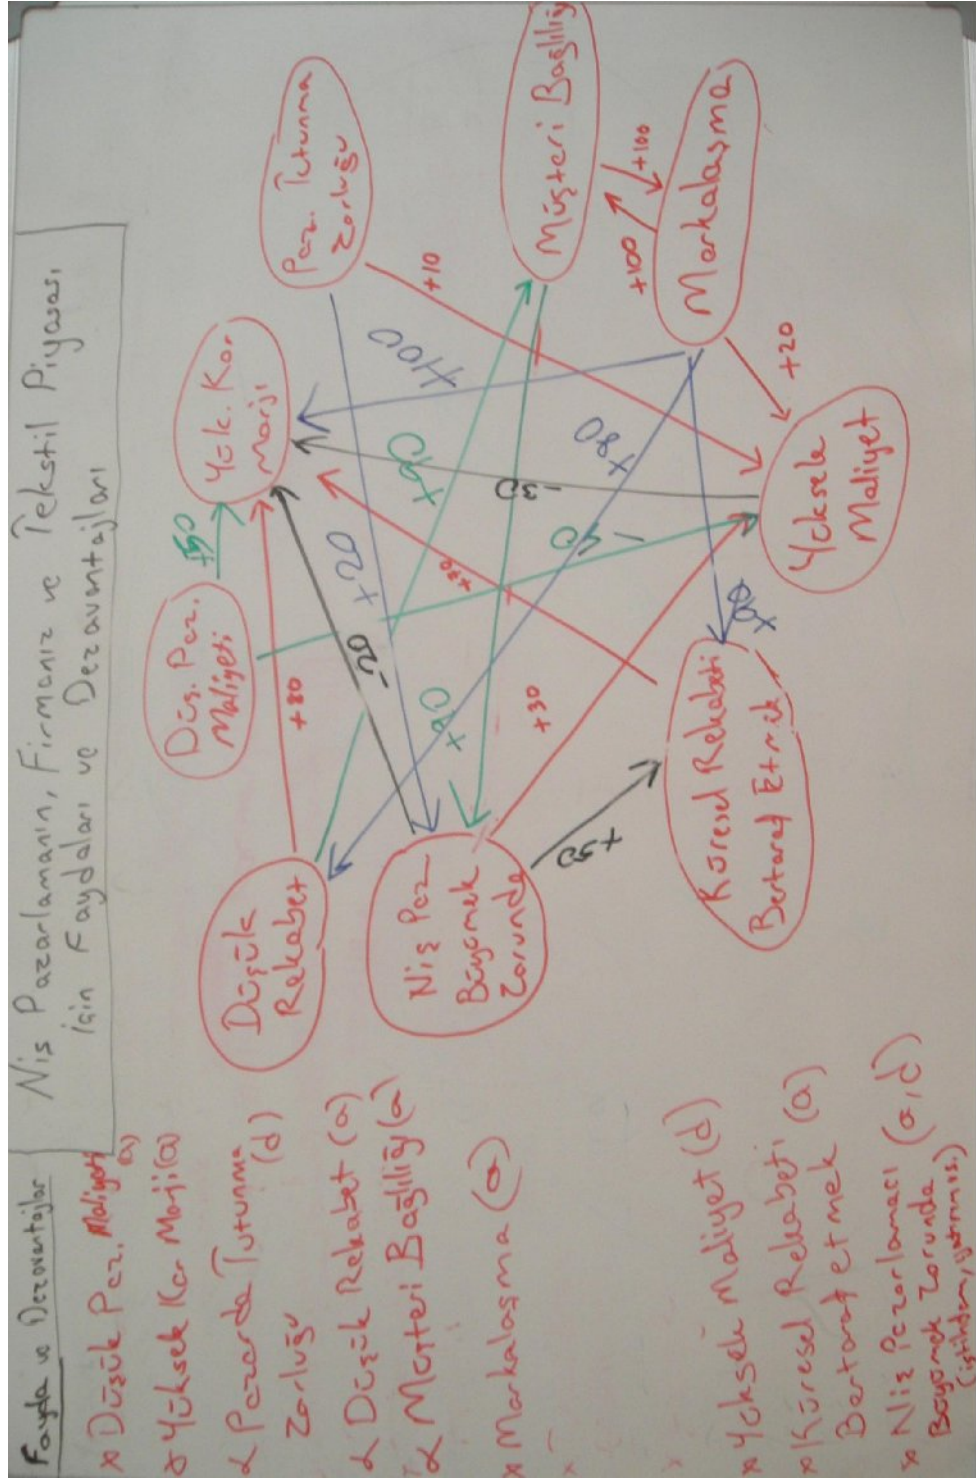 Niş Pazarlamanın, Firmanız ve Tekstil Piyasası
için Faydaları ve Dezavantajları
Fayda ve Dezavantajlar
x Düşük Paz. Maliyeti
(a)
Yüksek Kar Marjı (a)
Pazarda Tutunma
Zorluğu (d)
Düşük Rekabet (a)
Müşteri Bağlılığı (a)
x Markalaşma (a)
x Yüksek Maliyet (d)
x Küresel Rekabeti
Bertaraf etmek (a)
x Niş Pazarlamacı (a,d)
Büyümek Zorunda
Düşük
Rekabet
Düş. Paz.
Maliyeti
Yük. Kar
Marjı
Paz. Tutunma
Zorluğu
Müşteri Bağlılığı
Markalaşma
Yüksek
Maliyet
Küresel Rekabeti
Bertaraf Etmek
Niş Paz
Büyümek
Zorunda
+80
-20
+20
+90
+100
+10
+90
-30
-40
+80
+30
+50
+100
+100
+20